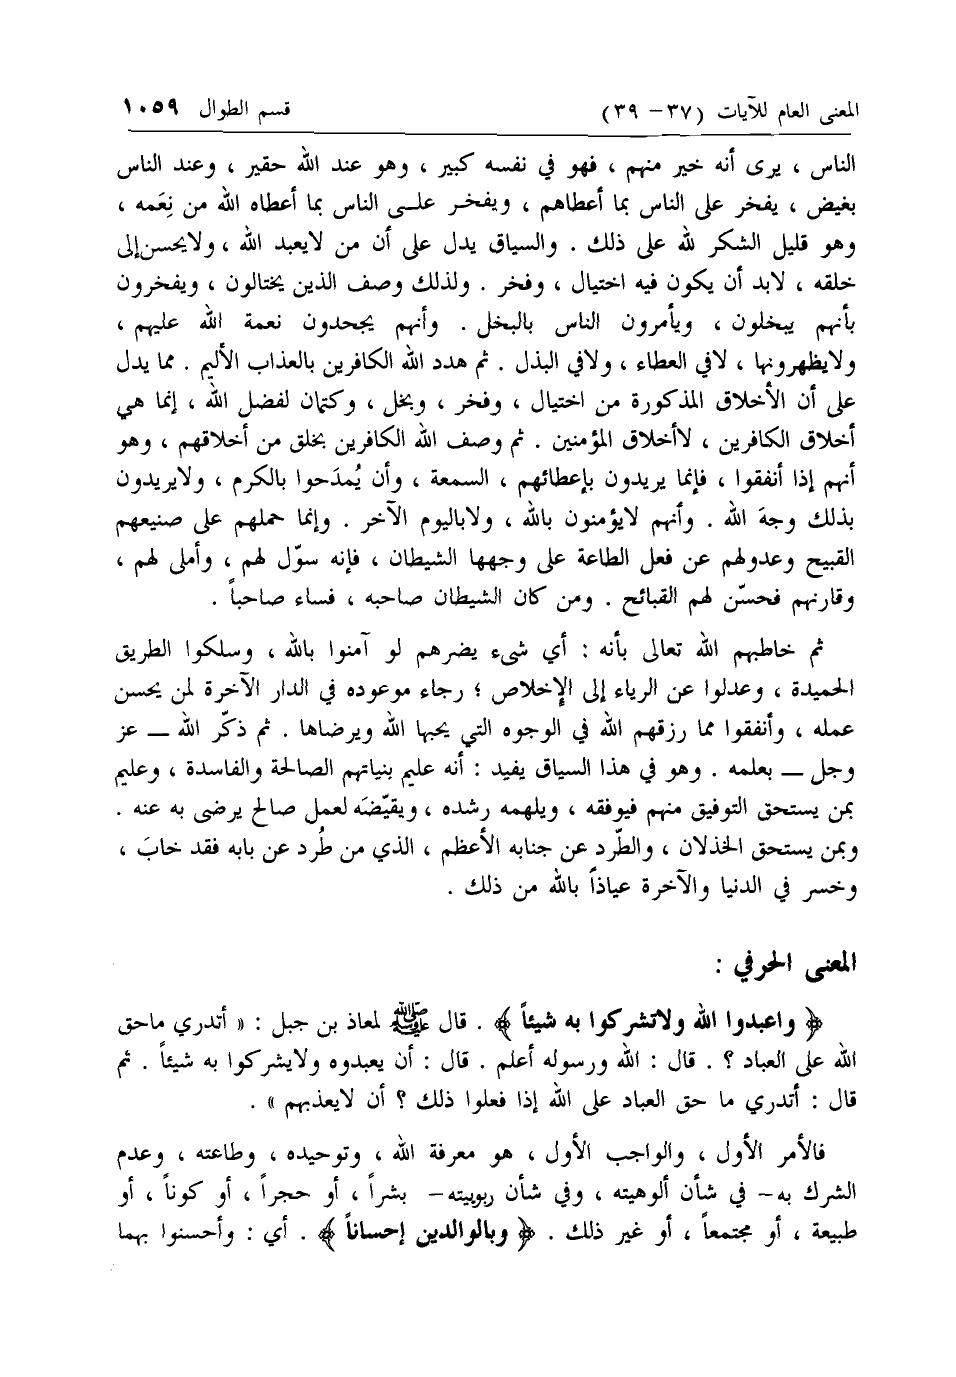 المعنى العام للآيات (٣٧ – ٣٩) قسم الطوال ١٠٥٩
الناس ، يرى أنه خير منهم ، فهو في نفسه كبير ، وهو عند الله حقير ، وعند الناس
بغيض ، يفخر على الناس بما أعطاهم ، ويفخر على الناس بما أعطاه الله من نِعَمه ،
وهو قليل الشكر لله على ذلك . والسياق يدل على أن من لايعبد الله ، ولايحسن إلى
خلقه ، لابد أن يكون فيه اختيال ، وفخر . ولذلك وصف الذين يختالون ، ويفخرون
بأنهم يبخلون ، ويأمرون الناس بالبخل . وأنهم يجحدون نعمة الله عليهم ،
ولايظهرونها ، لافي العطاء ، ولافي البذل . ثم هدد الله الكافرين بالعذاب الأليم . مما يدل
على أن الأخلاق المذكورة من اختيال ، وفخر ، وبخل ، وكتمان لفضل الله ، إنما هي
أخلاق الكافرين ، لاأخلاق المؤمنين . ثم وصف الله الكافرين بخلق من أخلاقهم ، وهو
أنهم إذا أنفقوا ، فإنما يريدون بإعطائهم ، السمعة ، وأن يُمدَحوا بالكرم ، ولايريدون
بذلك وجهَ الله . وأنهم لايؤمنون بالله ، ولاباليوم الآخر . وإنما حملهم على صنيعهم
القبيح وعدولهم عن فعل الطاعة على وجهها الشيطان ، فإنه سوّل لهم ، وأملى لهم ،
وقارنهم فحسّن لهم القبائح . ومن كان الشيطان صاحبه ، فساء صاحباً .
ثم خاطبهم الله تعالى بأنه : أي شىء يضرهم لو آمنوا بالله ، وسلكوا الطريق
الحميدة ، وعدلوا عن الرياء إلى الإخلاص ؛ رجاء موعوده في الدار الآخرة لمن يحسن
عمله ، وأنفقوا مما رزقهم الله في الوجوه التي يحبها الله ويرضاها . ثم ذكّر الله ـــ عز
وجل ـــ بعلمه . وهو في هذا السياق يفيد : أنه عليم بنياتهم الصالحة والفاسدة ، وعليم
بمن يستحق التوفيق منهم فيوفقه ، ويلهمه رشده ، ويقيّضَه لعمل صالح يرضى به عنه .
وبمن يستحق الخذلان ، والطّرد عن جنابه الأعظم ، الذي من طُرد عن بابه فقد خابَ ،
وخسر في الدنيا والآخرة عياذاً بالله من ذلك .
المعنى الحرفي :
﴿ واعبدوا الله ولاتشركوا به شيئاً ﴾ . قال ﷺ لمعاذ بن جبل : « أتدري ماحق
الله على العباد ؟ . قال : الله ورسوله أعلم . قال : أن يعبدوه ولايشركوا به شيئاً . ثم
قال : أتدري ما حق العباد على الله إذا فعلوا ذلك ؟ أن لايعذبهم » .
فالأمر الأول ، والواجب الأول ، هو معرفة الله ، وتوحيده ، وطاعته ، وعدم
الشرك به– في شأن ألوهيته ، وفي شأن ربوبيته– بشراً ، أو حجراً ، أو كوناً ، أو
طبيعة ، أو مجتمعاً ، أو غير ذلك . ﴿ وبالوالدين إحساناً ﴾ . أي : وأحسنوا بهما